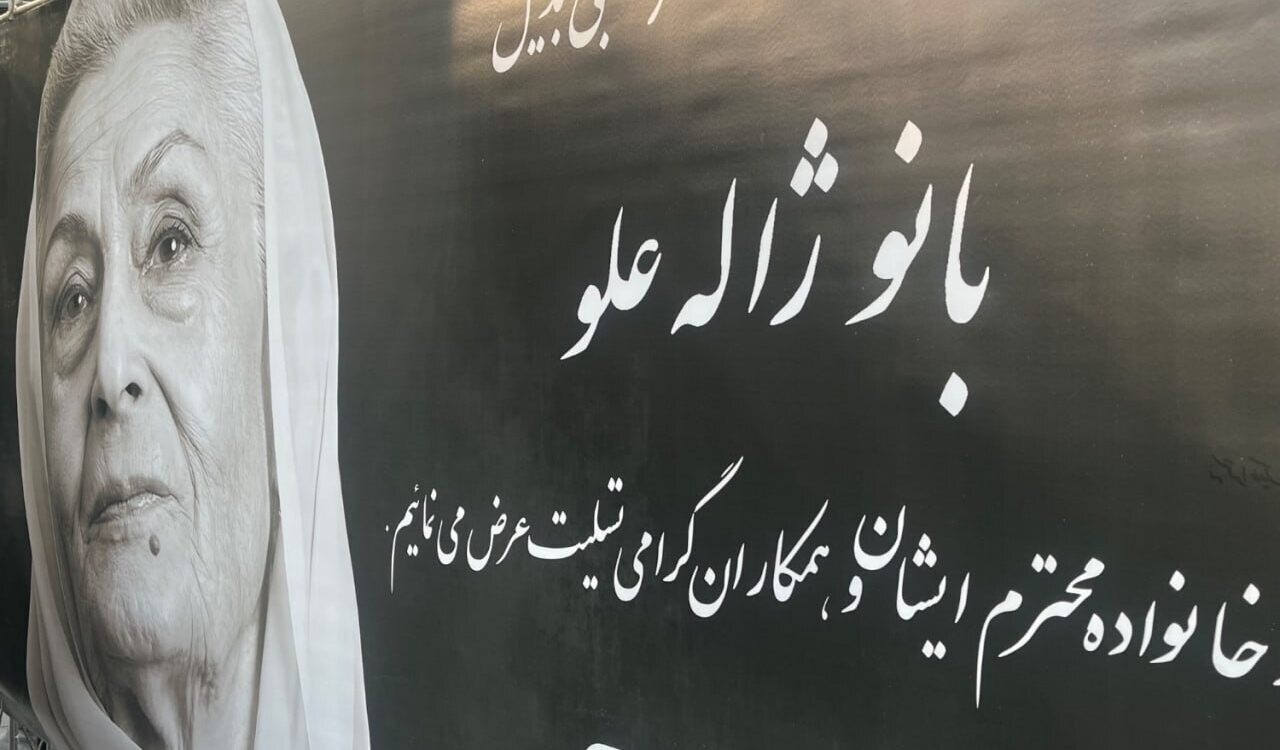 بی بدیل
بانو ژاله علو
خانواده محترم ایشان و همکاران گرامی تسلیت عرض می نمائیم.